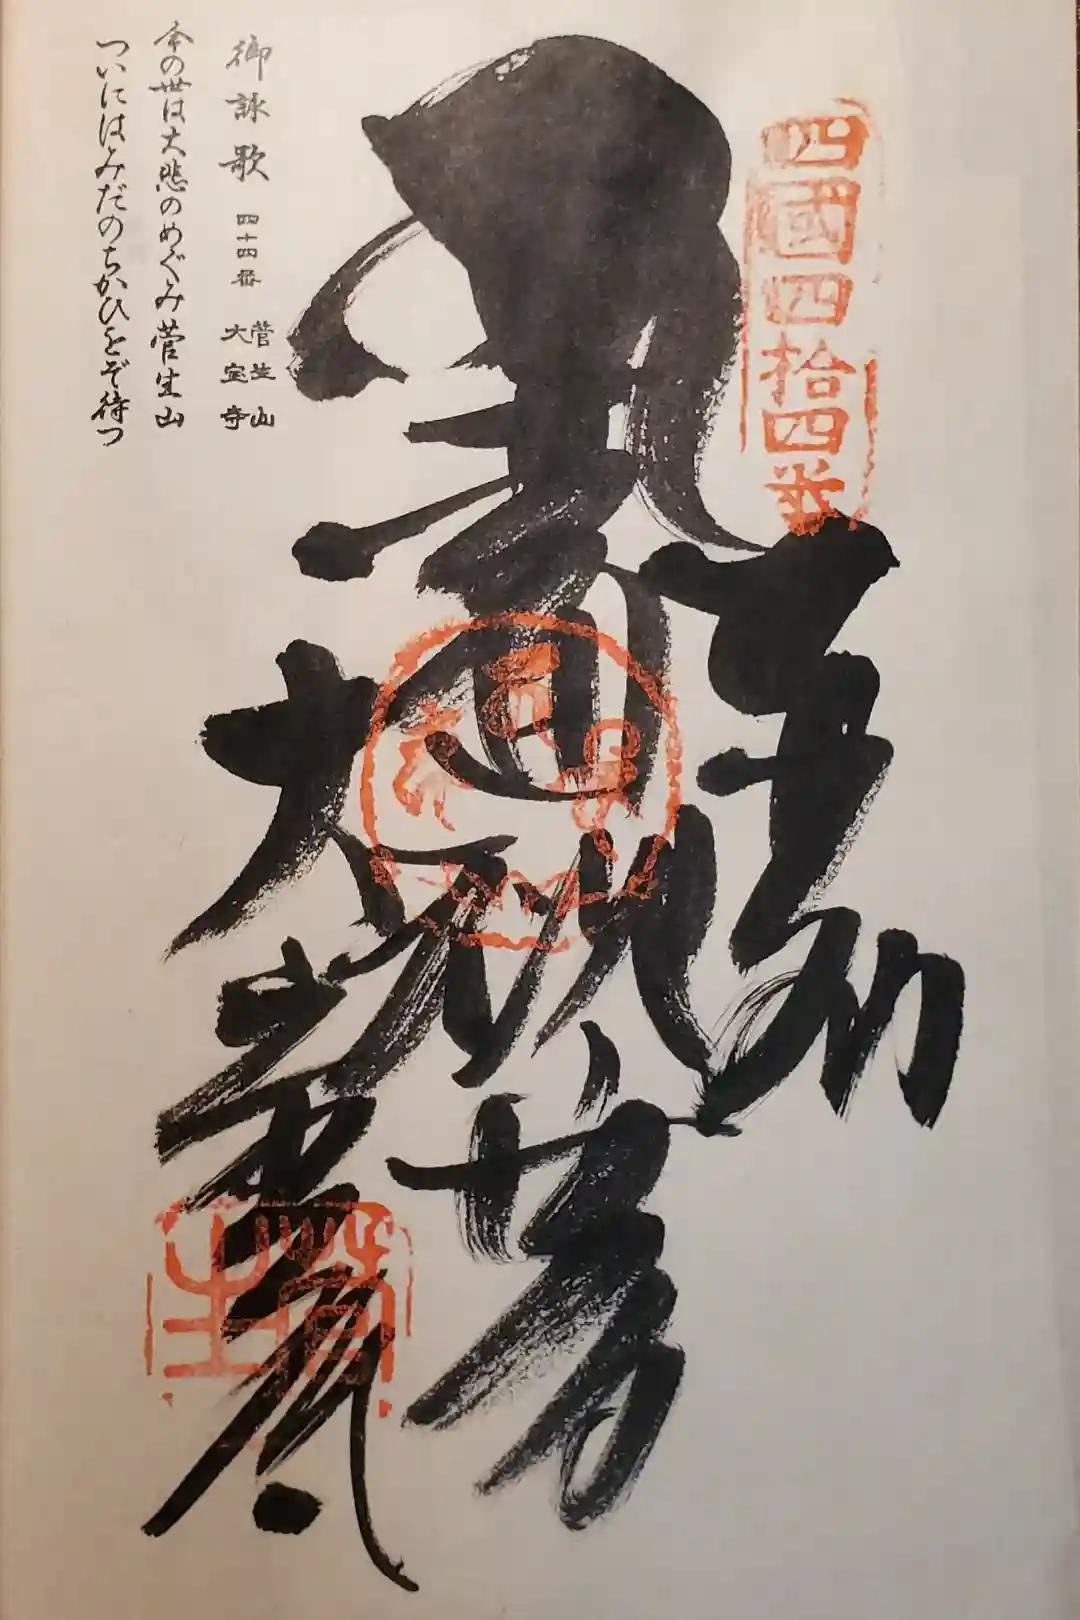 四國四拾四番
奉納
十一面観世音
大宝寺
菅生
御詠歌 四十四番 菅生山 大宝寺
今の世は大悲のめぐみ菅生山
ついにはみだのちかひをぞ待つ